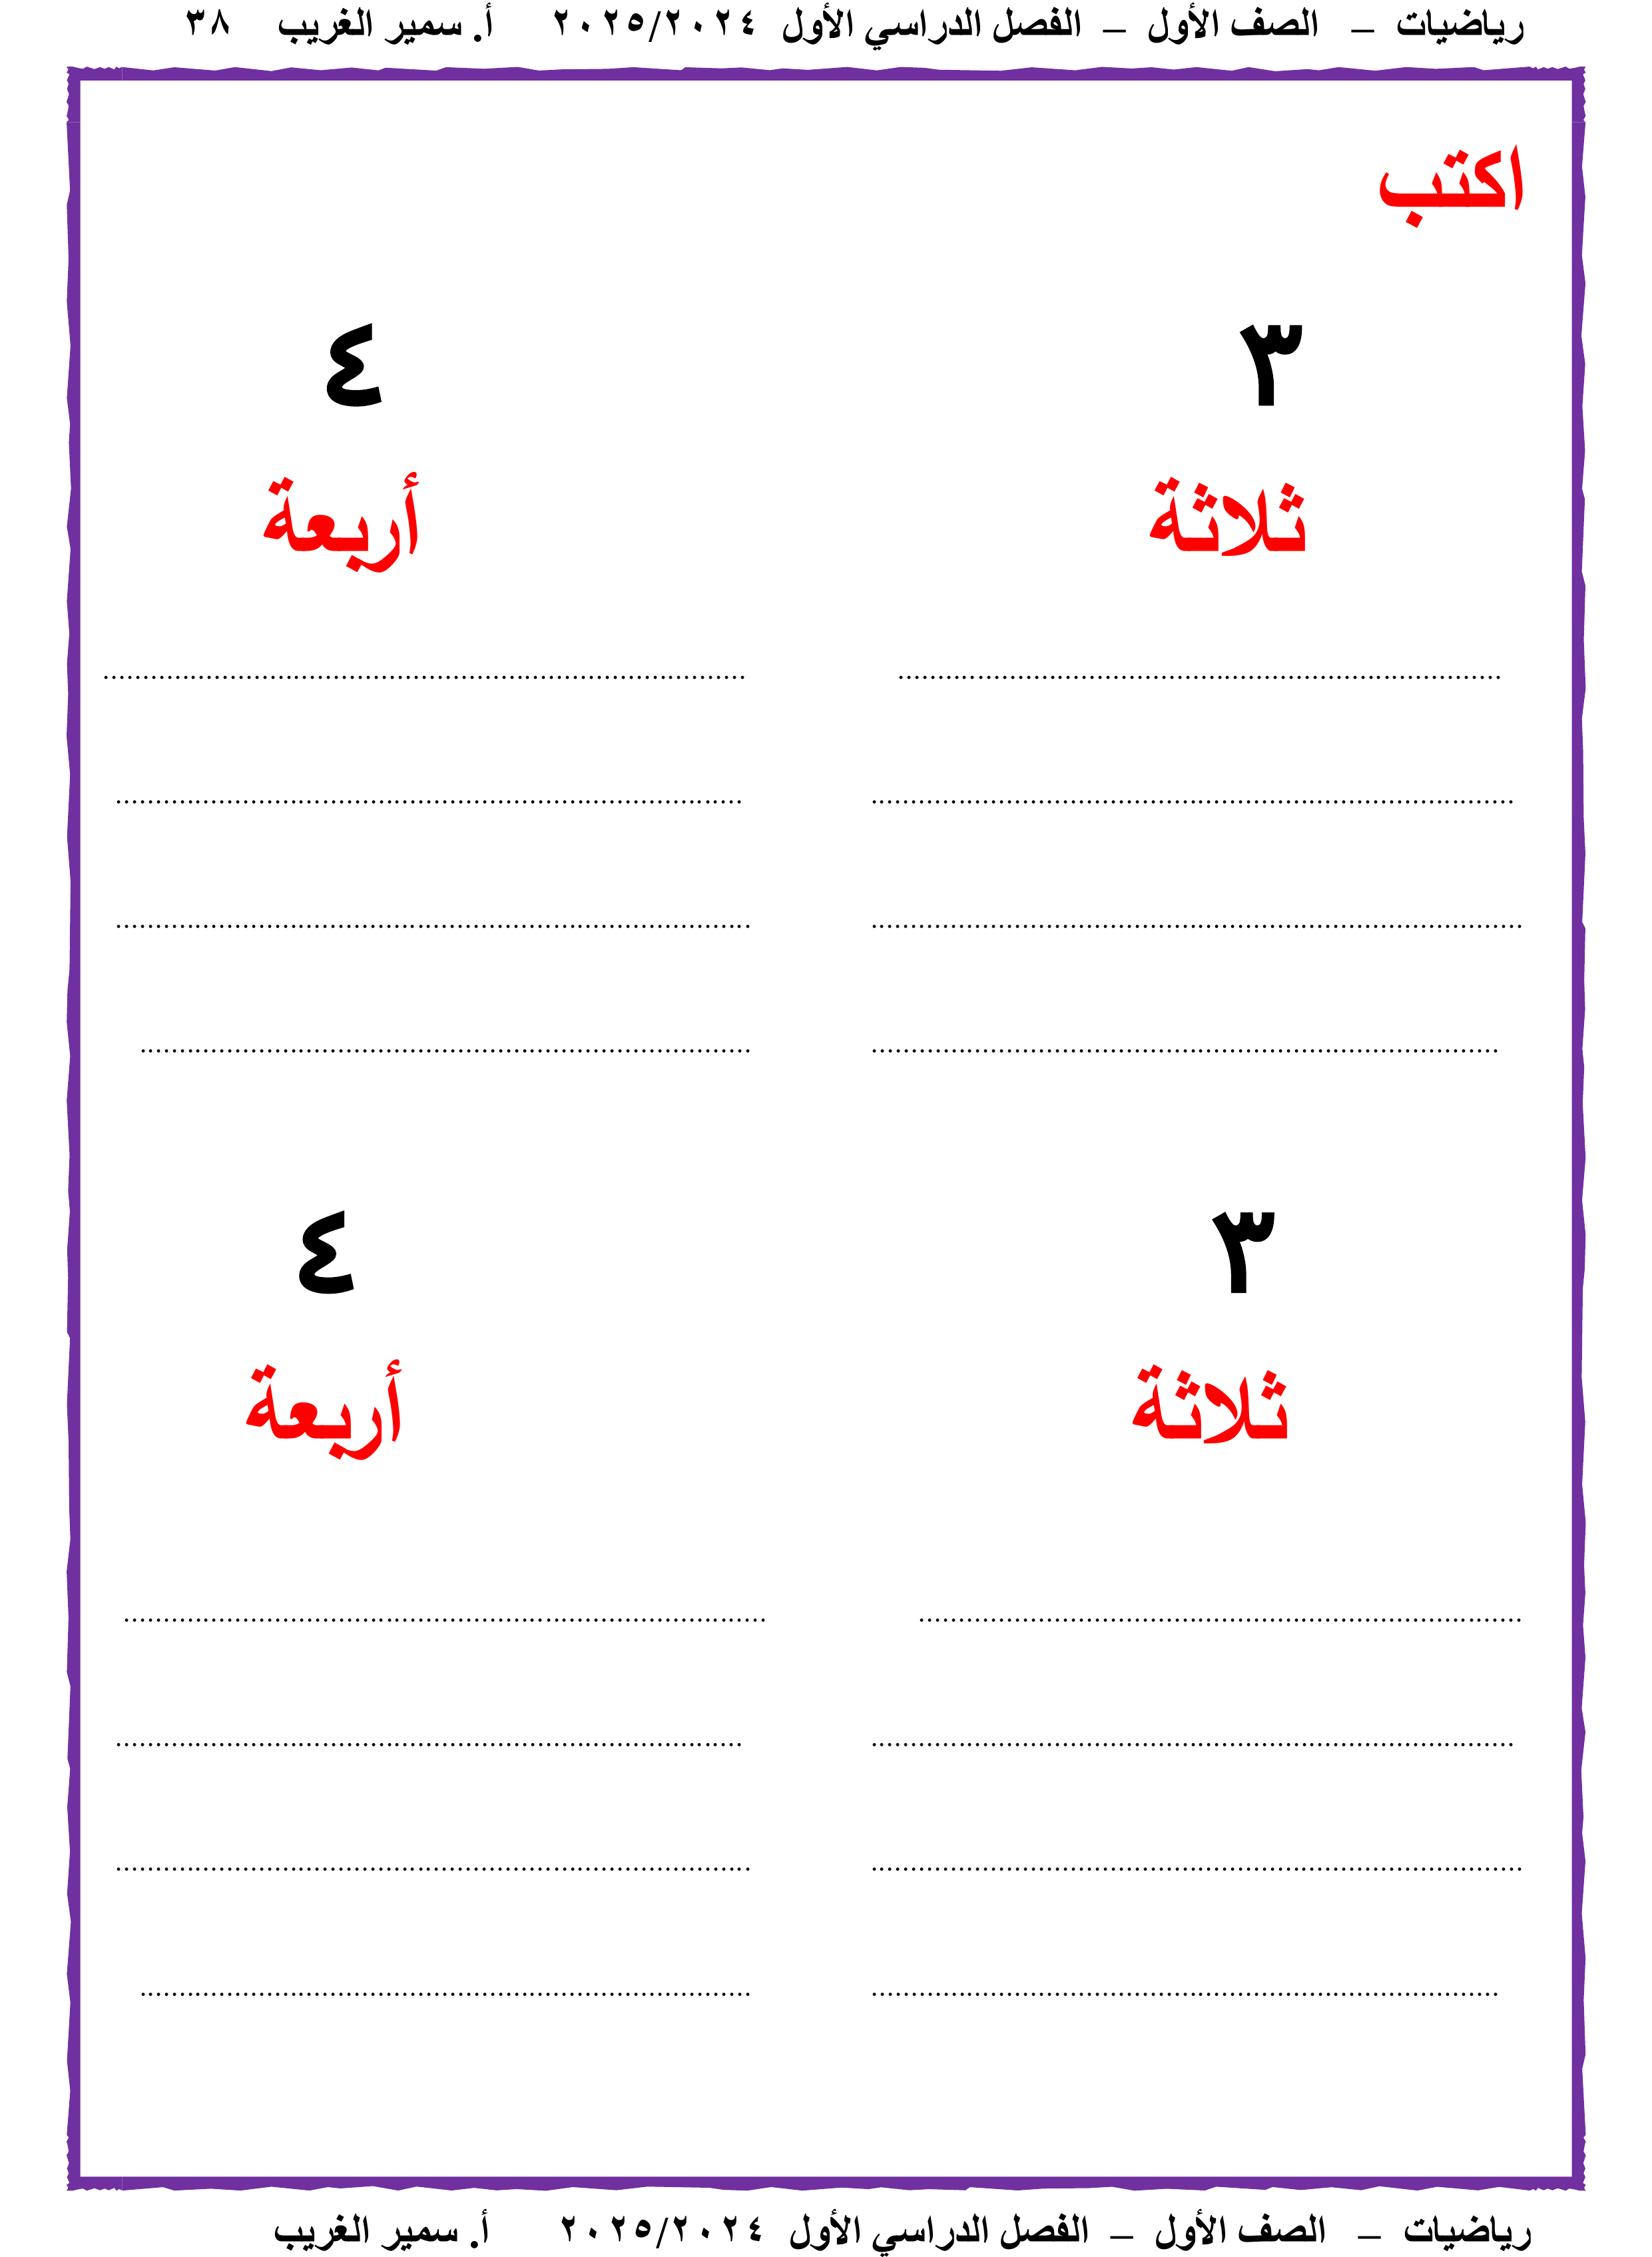 رياضيات – الصف الأول – الفصل الدراسي الأول ٢٠٢٥/٢٠٢٤ أ. سمير الغريب ٣٨
اكتب
٣ ٤
ثلاثة أربعة
........................................ ........................................
........................................ ........................................
........................................ ........................................
........................................ ........................................
٣ ٤
ثلاثة أربعة
........................................ ........................................
........................................ ........................................
........................................ ........................................
........................................ ........................................
رياضيات – الصف الأول – الفصل الدراسي الأول ٢٠٢٥/٢٠٢٤ أ. سمير الغريب